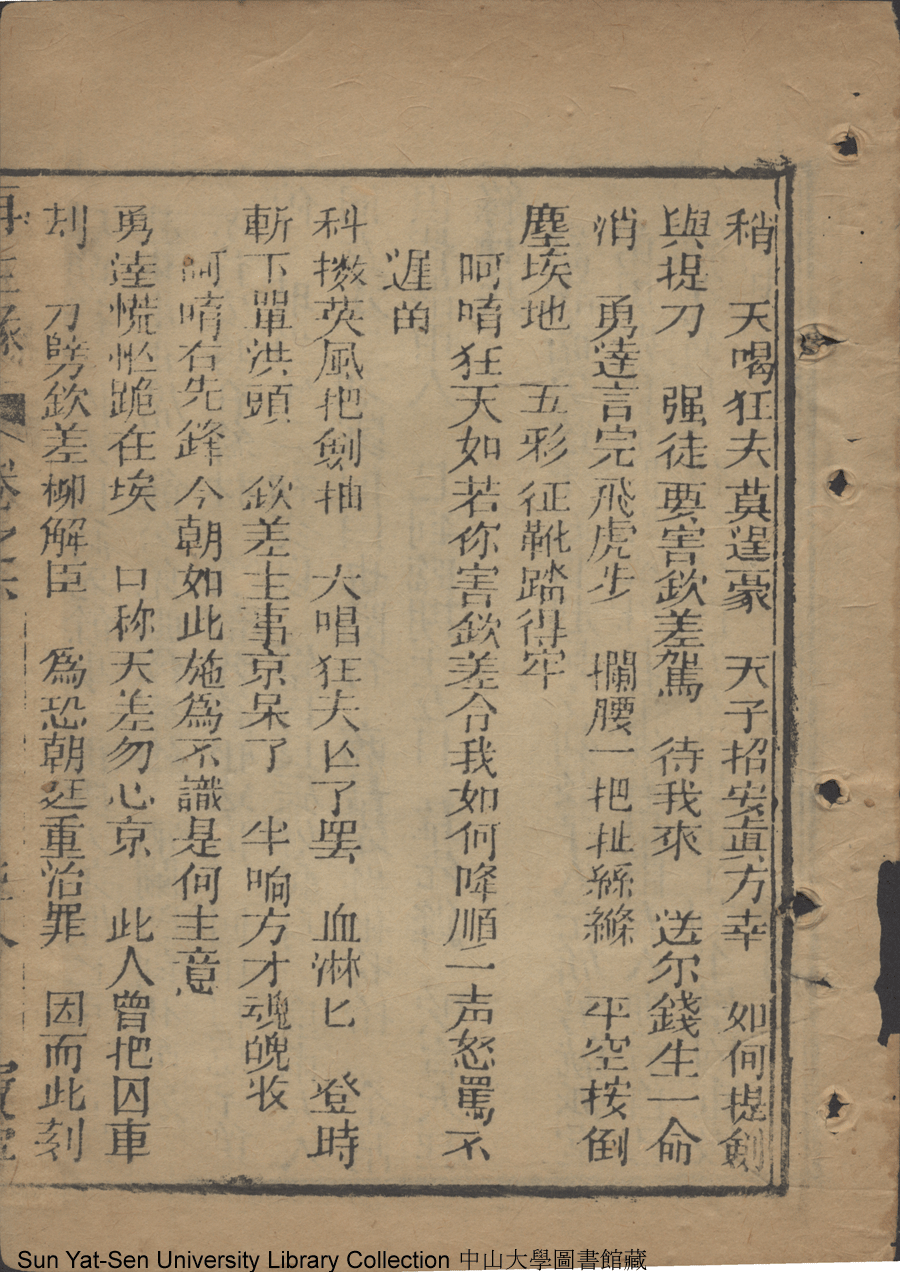 稍　天喝狂夫莫逞豪　天子招安真方幸　如何提劍
與提刀　强徒要害欽差駕　待我來　送尔錢生一命
消　勇達言完飛虎步　攔腰一把扯絲縧　平空按倒
塵埃地　五彩征靴踏得牢
呵唷狂天如若你害欽差合我如何降順一声怒罵不
遲的
科擻英風把劍抽　大唱狂夫亾了罢　血淋匕　登時
斬下單洪頭　欽差主事京呆了　半晌方才魂魄收
呵唷右先鋒今朝如此施為不識是何主意
勇達慌忙跪在埃　口称天差勿心京　此人曾把囚車
刦　刀劈欽差柳解臣　為恐朝廷重治罪　因而此刻
再生緣　卷之六
Sun Yat-Sen University Library Collection 中山大學圖書館藏